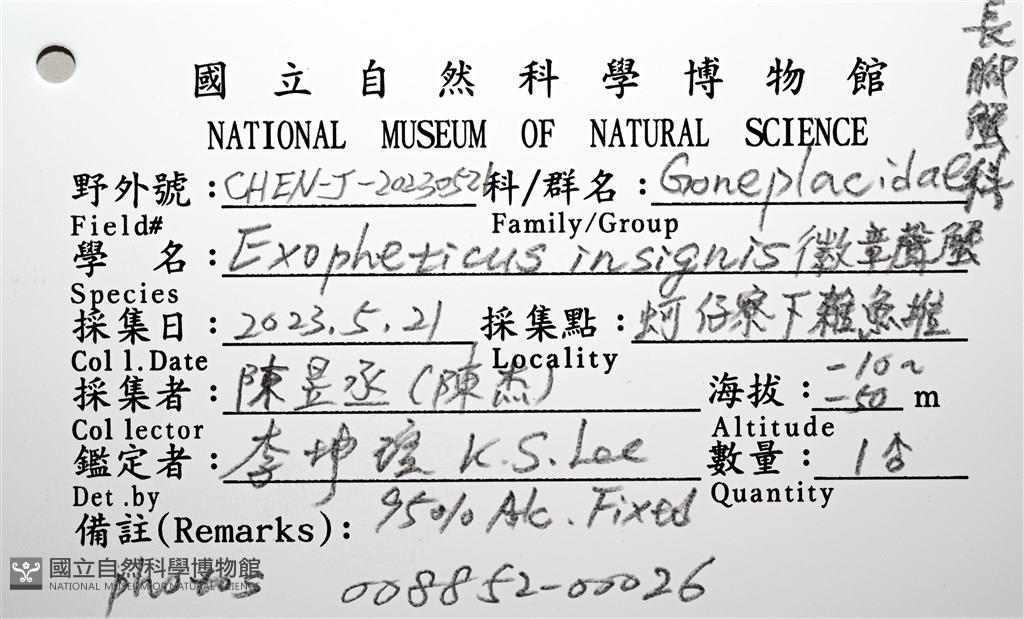 國立自然科學博物館
NATIONAL MUSEUM OF NATURAL SCIENCE
長腳蟹科
野外號：CHEN-J-20230521 科/群名：Goneplacidae
Field# Family/Group
學 名：Exopheticus insignis 徽章聲蟹
Species
採集日：2023.5.21 採集點：蚵仔寮下雜魚堆
Coll.Date Locality
採集者：陳昱丞(陳杰) 海拔：-10~-50 m
Collector Altitude
鑑定者：李坤瑄 K.S. Lee 數量：1
Det.by Quantity
備註(Remarks): 95% Alc. Fixed
photos 008852-00026
國立自然科學博物館
NATIONAL MUSEUM OF NATURAL SCIENCE